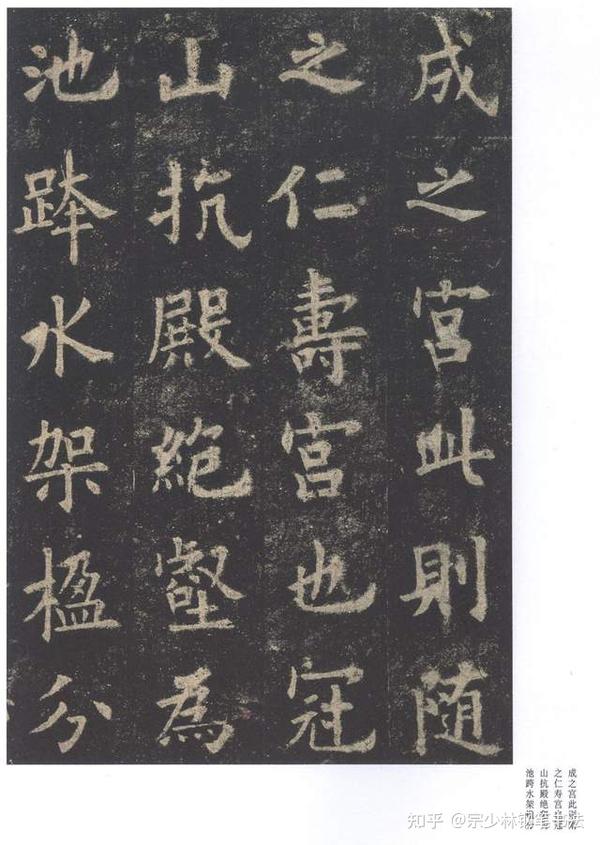 成之宮此則随
之仁壽宮也冠
山抗殿絶壑為
池跨水架楹分
成之宫此则
之仁寿宫
山抗殿绝
池跨水架
知乎 @宗少林钢笔书法